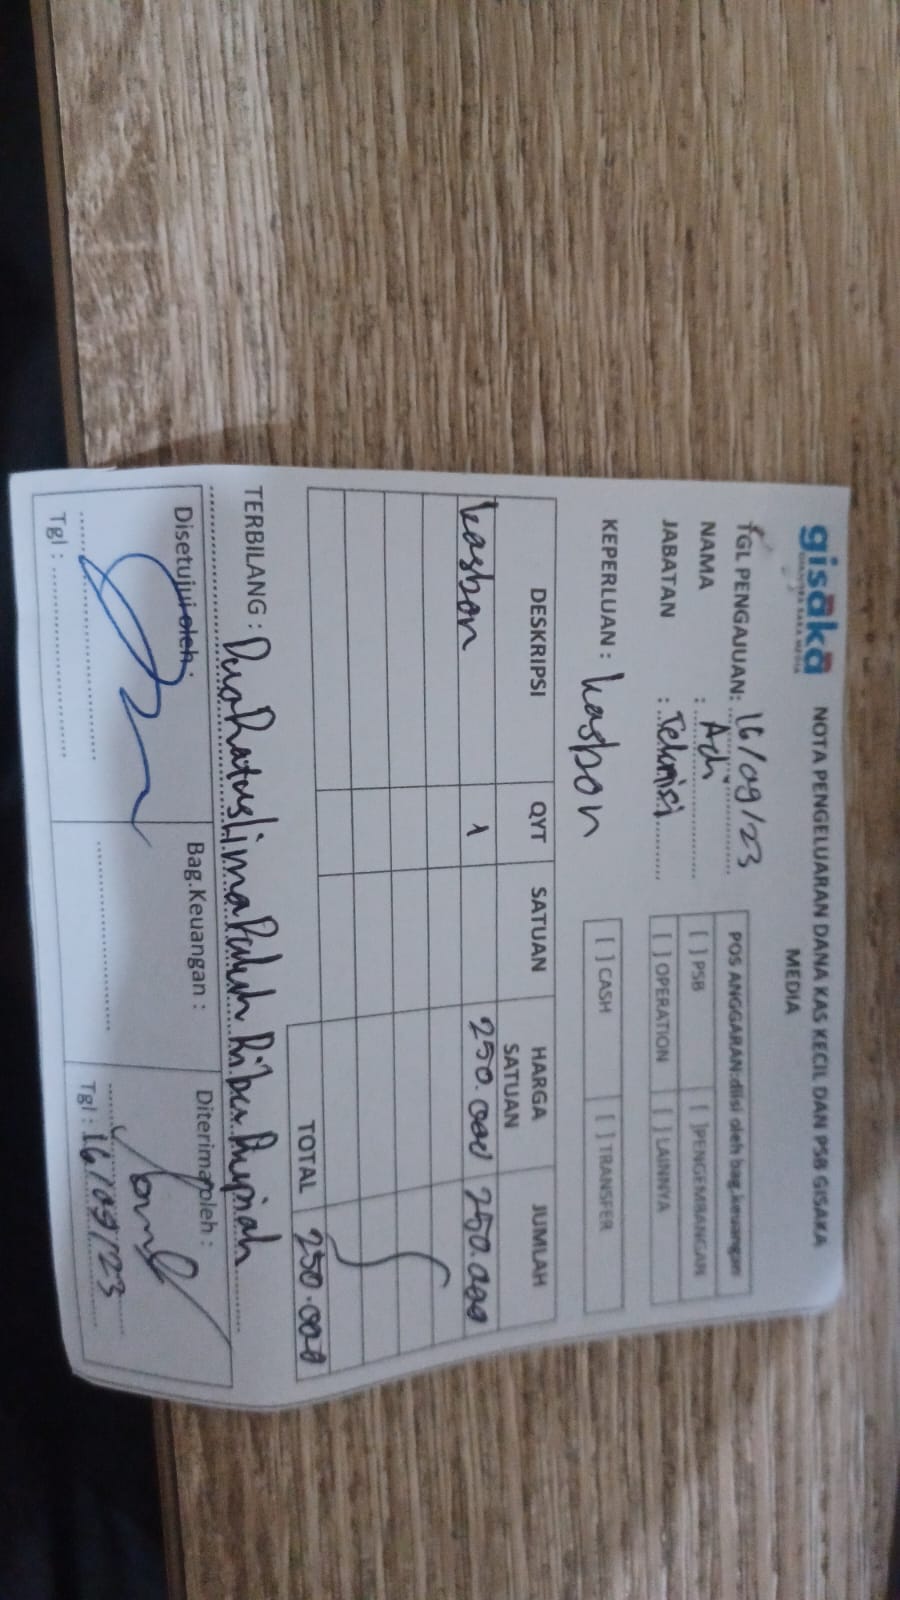 gisaka
NOTA PENGELUARAN DANA KAS KECIL DAN PSB GISAKA
MEDIA
TGL PENGAJUAN: 16/09/23
NAMA : Adi
JABATAN : Teknisi
POS ANGGARAN:diisi oleh bag.keuangan
[ ] PSB [ ]PENGEMBANGAN
[ ] OPERATION [ ] LAINNYA
KEPERLUAN : kasbon
[ ] CASH [ ] TRANSFER
DESKRIPSI QYT SATUAN HARGA SATUAN JUMLAH
kasbon 1 250.000 250.000
TOTAL 250.000
TERBILANG : Dua Ratus Lima Puluh Ribu Rupiah
Disetujui oleh : Bag.Keuangan : Diterima oleh :
Tgl : Tgl : 16/09/23